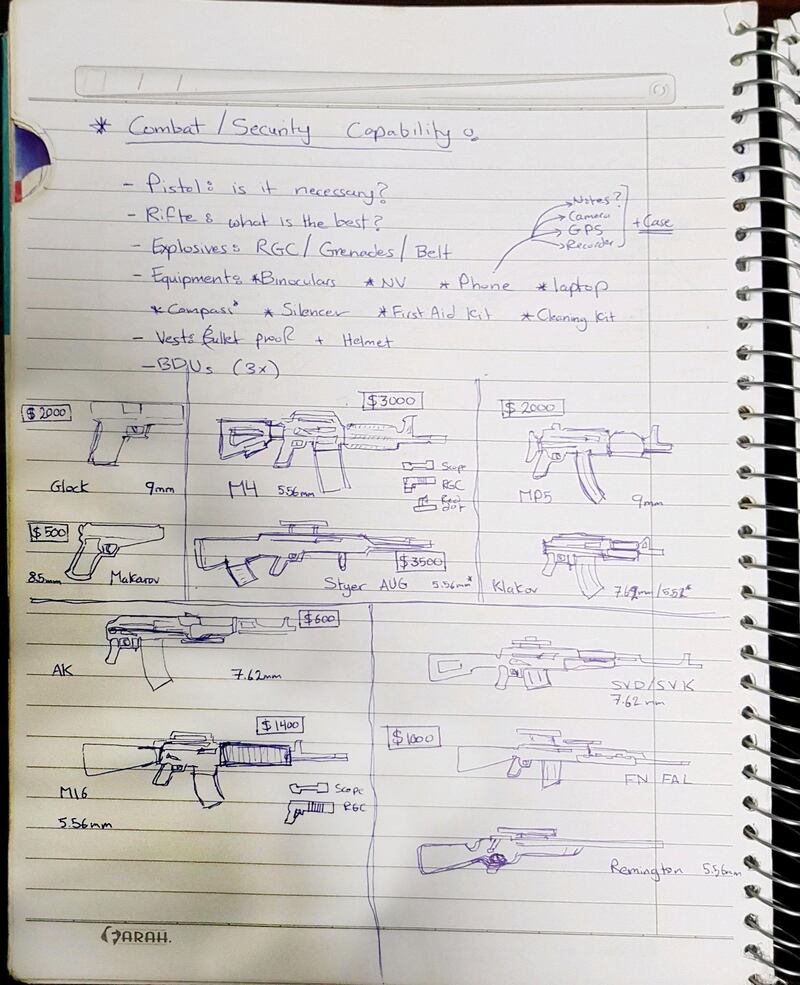 * Combat / Security Capability :
- Pistol: is it necessary?
- Rifle: what is the best?
- Explosives: RGC / Grenades / Belt
Notes?
Camera
GPS
Recorder
+ Case
- Equipments: *Binoculars *NV *Phone *laptop
*Compass* *Silencer *First Aid Kit *Cleaning Kit
- Vest: Bullet proof + Helmet
- BDUs (3x)
$2000
Glock 9mm
$3000
M4 5.56mm
Scope
RGC
Red dot
$2000
MP5 9mm
$500
85mm Makarov
$3500
Styer AUG 5.56mm*
Klakov 7.62mm/5.52*
$600
AK 7.62mm
SVD/SVK
7.62mm
$1400
M16
5.56mm
Scope
RGC
$1000
FN FAL
Remington 5.56mm
FARAH.